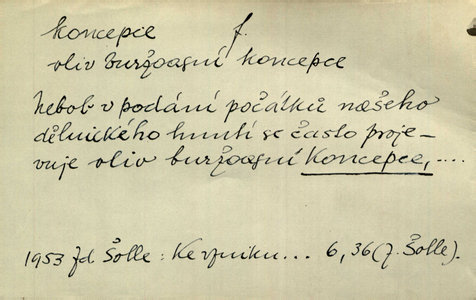 koncepce f.
vliv buržoasní koncepce
Neboť v podání počátků našeho
dělnického hnutí se často proje-
vuje vliv buržoasní koncepce, ....
1953 Zd. Šolle: K vzniku... 6, 36 (Z. Šolle).